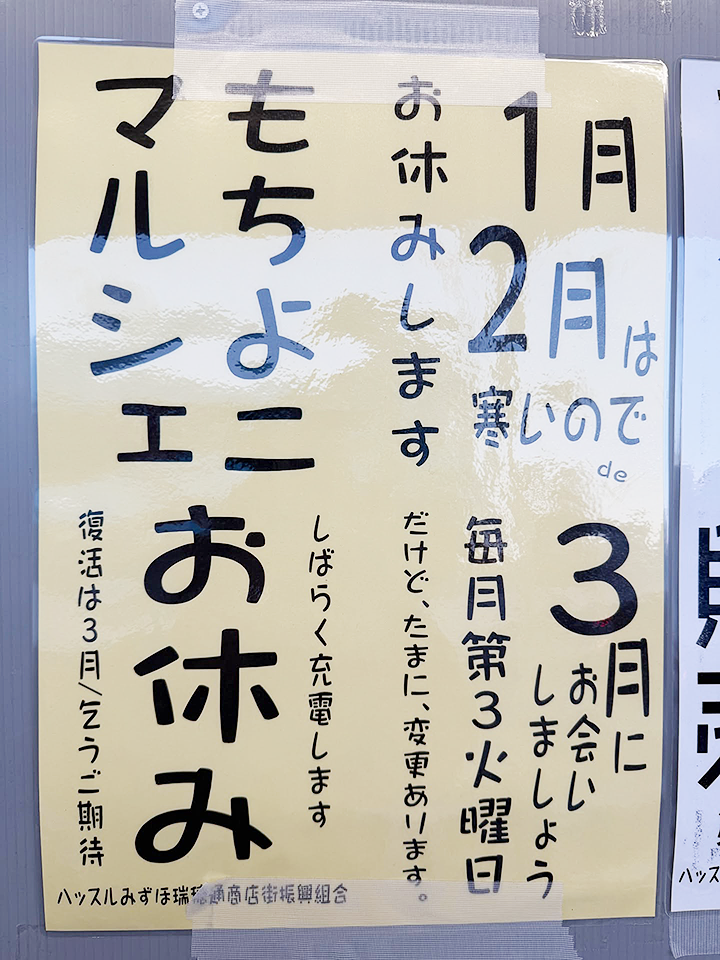 1月
2月は
寒いので
de
お休みします
3月に
お会い
しましょう
毎月第3火曜日
だけど、たまに、変更あります。
もちよこ
マルシェ
しばらく充電します
お休み
復活は3月/乞うご期待
ハッスルみずほ瑞穂通商店街振興組合
ハッス